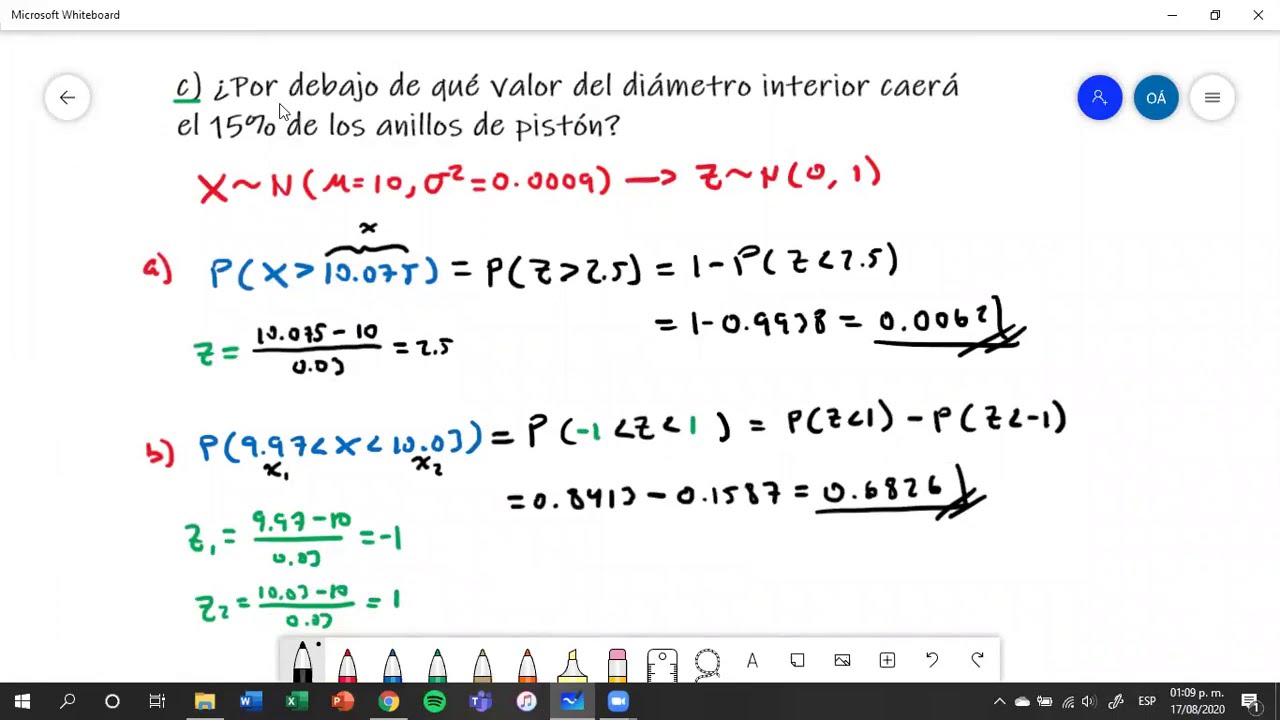 Microsoft Whiteboard
c) ¿Por debajo de qué valor del diámetro interior caerá
OÁ
el 15% de los anillos de pistón?
X~N(μ=10, σ²=0.0009) → Z~N(0, 1)
x
a) P(X>10.075) = P(Z>2.5) = 1-P(Z<2.5)
= 1-0.9938 = 0.0062
Z = (10.075-10)/0.03 = 2.5
b) P(9.97<X<10.03) = P(-1<Z<1) = P(Z<1) - P(Z<-1)
x₁ x₂
= 0.8413 - 0.1587 = 0.6826
Z₁ = (9.97-10)/0.03 = -1
Z₂ = (10.03-10)/0.03 = 1
A
ESP
01:09 p. m.
17/08/2020
1